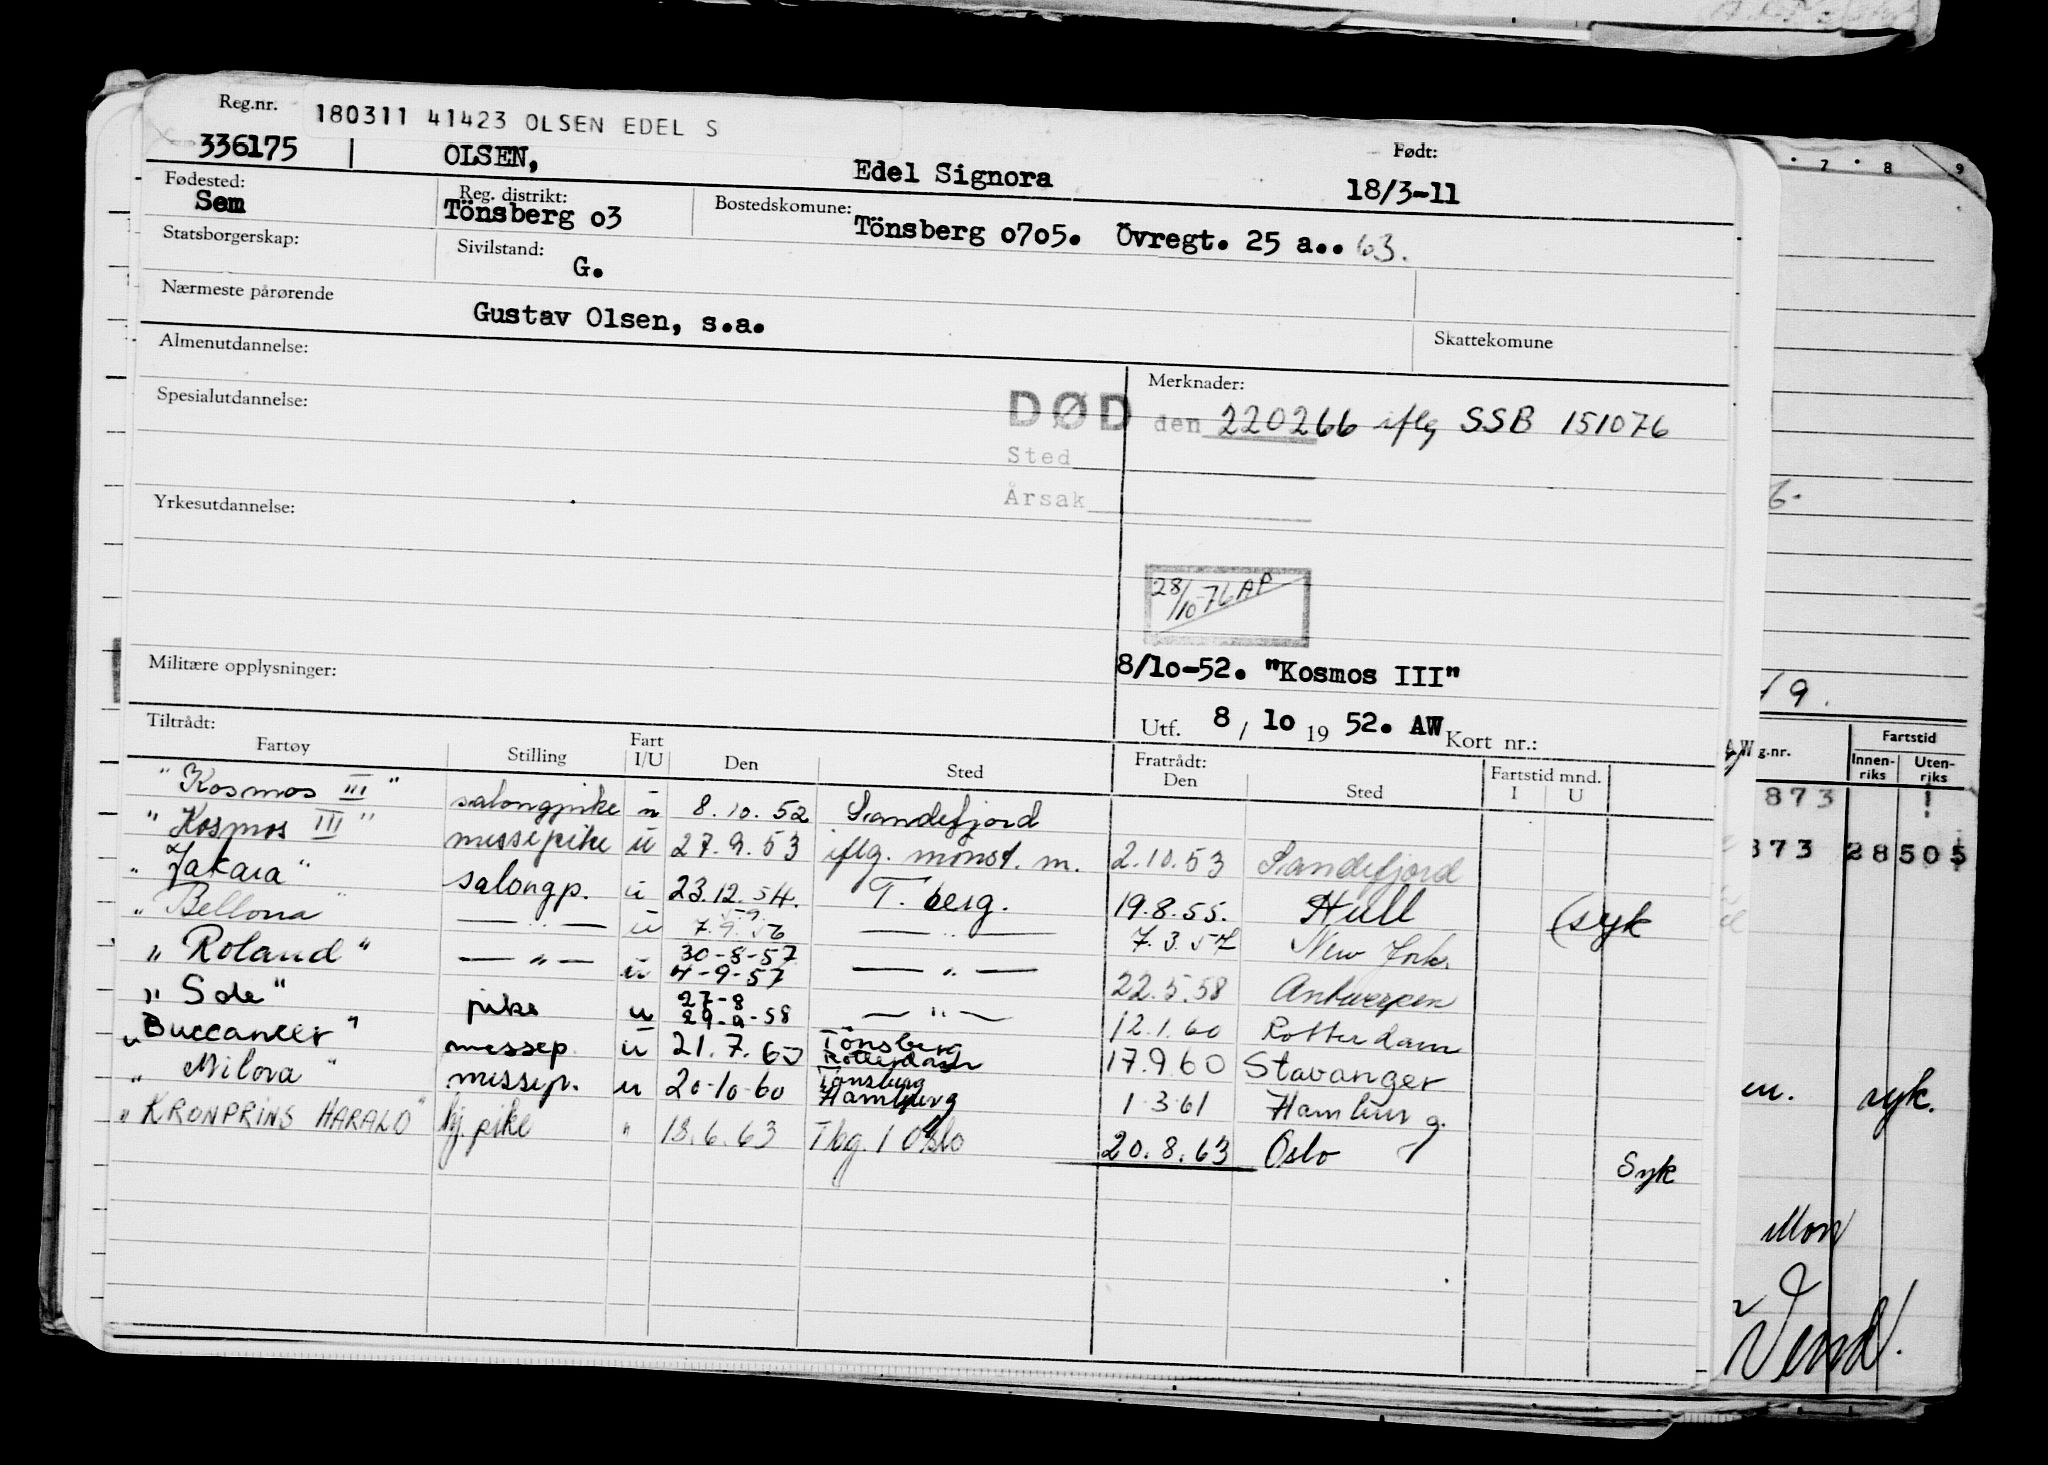 Reg.nr. 180311 41423 OLSEN EDEL S
336175 OLSEN, Edel Signora Født: 18/3-11
Fødested: Sem Reg. distrikt: Tönsberg o3 Bostedskomune: Tönsberg o7o5. Övregt. 25 a.. 63.
Statsborgerskap: Sivilstand: G.
Nærmeste pårørende Gustav Olsen, s.a.
Skattekomune
Almenutdannelse:
Merknader:
Spesialutdannelse:
DØD den 220266 iflg SSB 151076
Sted
Årsak
Yrkesutdannelse:
28/10-76 AP
Militære opplysninger:
8/1o-52. "Kosmos III"
Utf. 8 / 1o 19 52. AW Kort nr.:
Tiltrådt: Fratrådt:
Fartøy Stilling Fart I/U Den Sted Den Sted Fartstid mnd. I U
"Kosmos III" salongpike u 8.10.52 Sandefjord
"Kosmos III" messepike u 27.9.53 iflg. mønst. m. 2.10.53 Sandefjord
"Jakara" salongp. u 23.12.54. T.berg. 19.8.55. Hull (syk
"Bellona" — " — u 7.9.56 — " — 7.3.57 New York.
"Roland" — " — u 30-8-57 4-9-57 — " — 22.5.58 Antwerpen
"Sole" pike u 27-8 29-9-58 — " — 12.1.60 Rotterdam
"Buccaneer" messep. u 21.7.60 Tönsberg Rotterdam 17.9.60 Stavanger
"Milora" messep. u 20-10-60 Tönsberg Hamburg 1.3.61 Hamburg.
"KRONPRINS HARALD" pike " 18.6.63 Tbg. / Oslo 20.8.63 Oslo Syk
7 8 9
6-
9.
AW g.nr. Fartstid
Innenriks Utenriks
873
873 28 505
en. syk.
Mon
Vend!